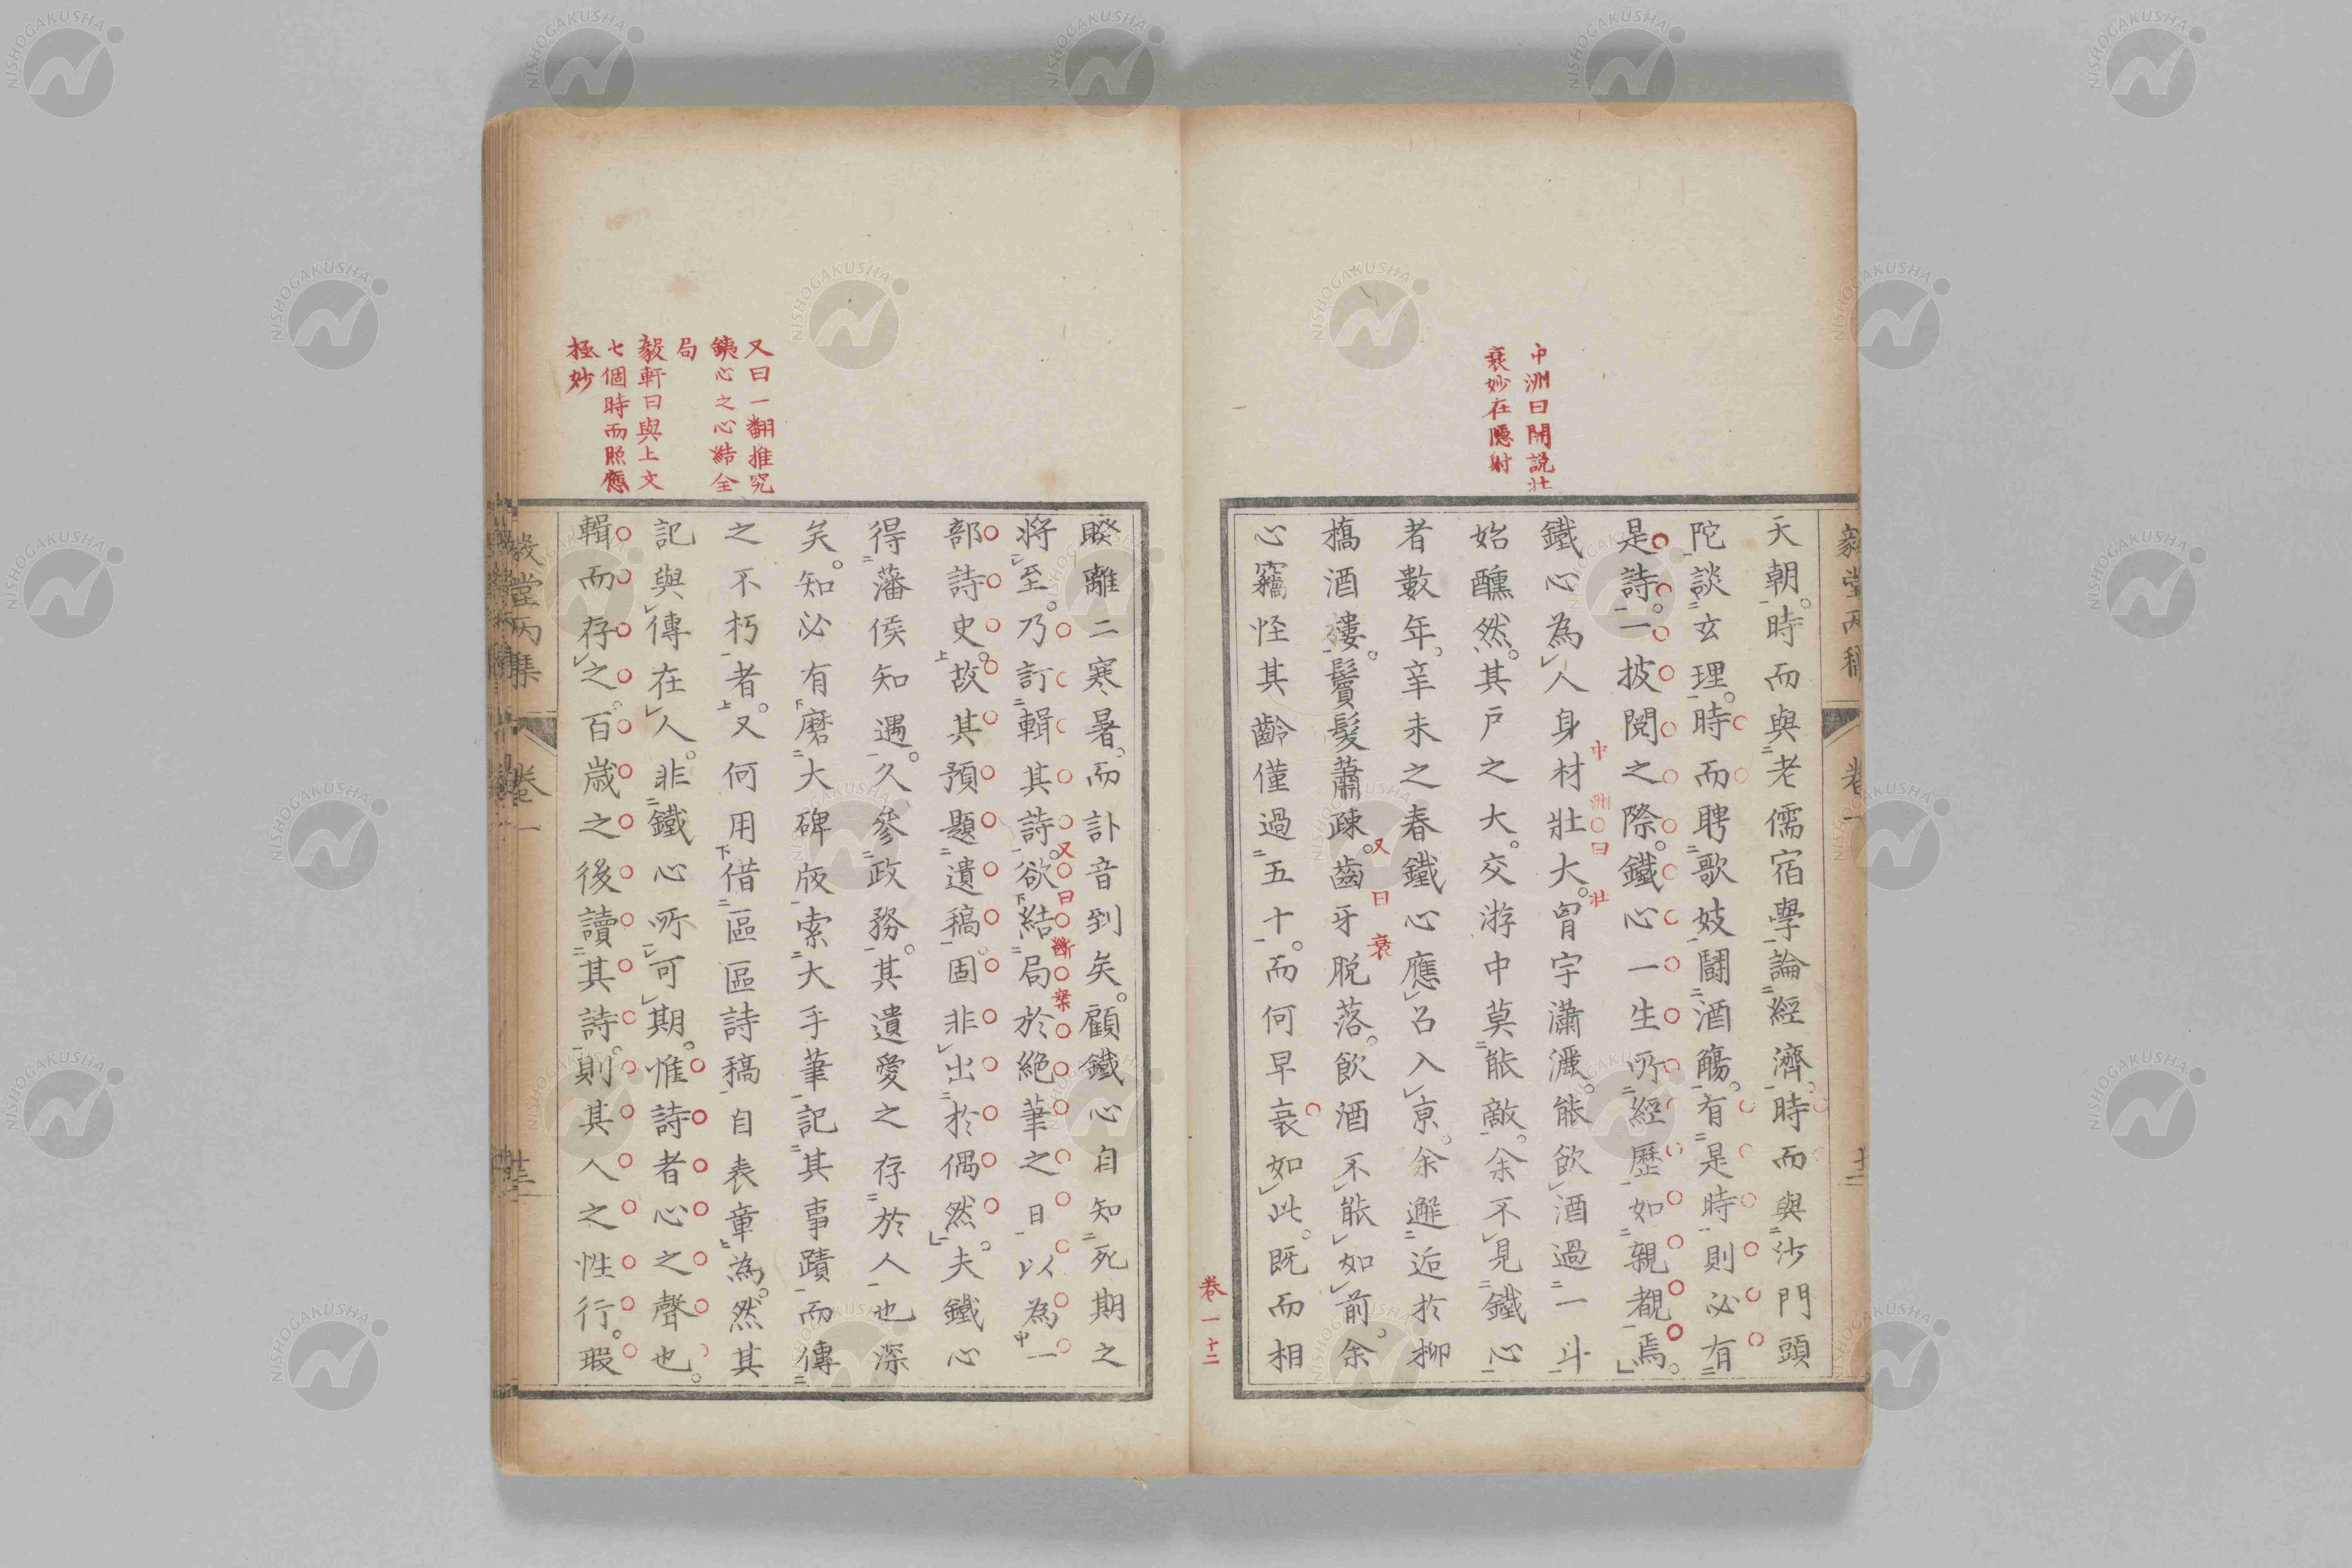 中洲曰開說壯
衰妙在隱射
天朝。時而與老儒宿學論經濟。時而與沙門頭
陀談玄理。時而聘歌妓鬪酒觴。有是時則必有
是詩。一披閱之際。鐵心一生所經歷如親覩焉。
鐵心為人身材壯大。胷宇瀟灑。能飲酒過一斗
中洲曰壯
始醺然。其戶之大。交游中莫能敵。余不見鐵心
者數年。辛未之春鐵心應召入京。余邂逅於柳
橋酒樓。鬢髮蕭疎。齒牙脫落。飲酒不能如前。余
又曰衰
心竊怪其齡僅過五十。而何早衰如此。既而相
卷一 十二
又曰一翻推究
銕心之心結全
局
毅軒曰與上文
七個時而照應
極妙
睽離二寒暑。而訃音到矣。顧鐵心自知死期之
將至。乃訂輯其詩。欲結局於絕筆之日以為一
又曰斷案
部詩史。故其預題遺稿。固非出於偶然。夫鐵心
得藩侯知遇。久參政務。其遺愛之存於人也深
矣。知必有磨大碑版索大手筆記其事蹟而傳
之不朽者。又何用借區區詩稿自表章為。然其
記與傳在人。非鐵心所可期。惟詩者心之聲也。
輯而存之。百歲之後讀其詩。則其人之性行。暇
毅堂丙集 卷一 十三